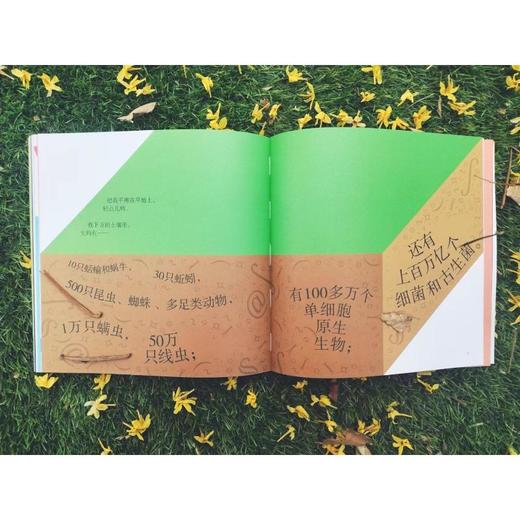 把书平摊在草地上，
轻点几响，
在下方的土壤里，
大约有——
10只蛞蝓和蜗牛，
30只蚯蚓，
500只昆虫、蜘蛛、多足类动物，
1万只螨虫，
50万
只线虫；
有100多万个
单细胞
原生
生物；
还有
上百万亿个
细菌和古生菌。